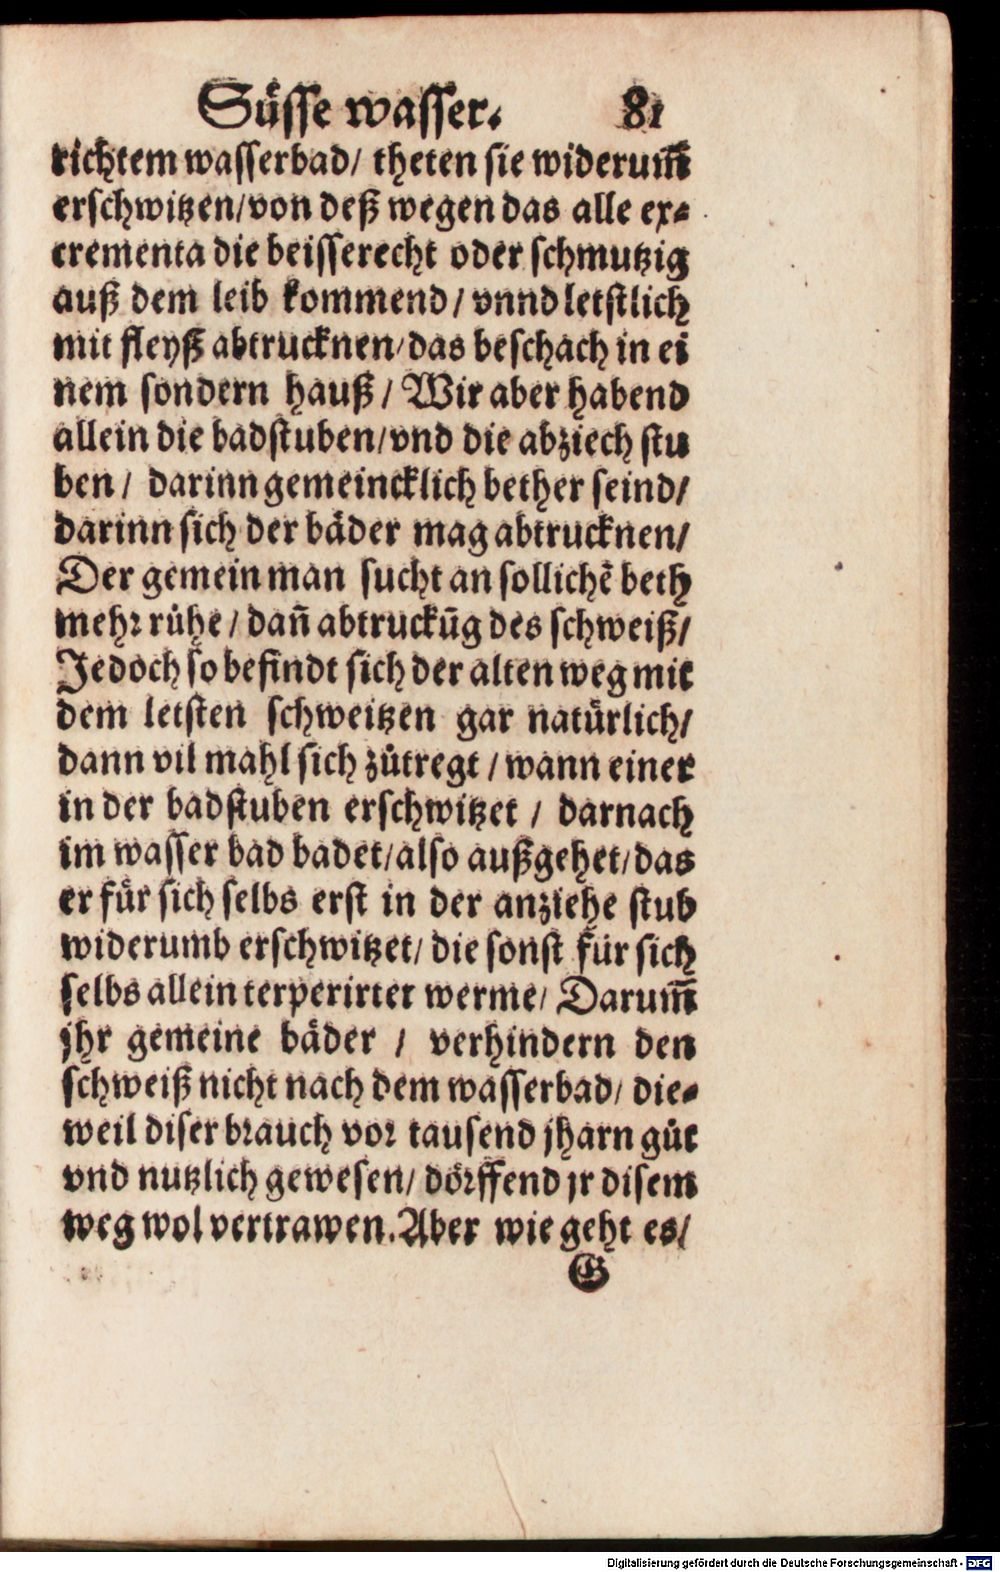 Süsse wasser. 81
richtem wasserbad/ theten sie widerum̃
erschwitzen/von deß wegen das alle ex⸗
crementa die beisserecht oder schmutzig
auß dem leib kommend/ vnnd letstlich
mit fleyß abtrucknen/das beschach in ei
nem sondern hauß/ Wir aber habend
allein die badstuben/vnd die abziech stu
ben/ darinn gemeincklich bether seind/
darinn sich der bäder mag abtrucknen/
Der gemein man sucht an sollichẽ beth
mehr růhe/ dañ abtruckũg des schweiß/
Jedoch so befindt sich der alten weg mit
dem letsten schweitzen gar natürlich/
dann vil mahl sich zůtregt/ wann einer
in der badstuben erschwitzet/ darnach
im wasser bad badet/also außgehet/das
er für sich selbs erst in der anziehe stub
widerumb erschwitzet/ die sonst für sich
selbs allein terperirter werme/ Darum̃
jhr gemeine bäder/ verhindern den
schweiß nicht nach dem wasserbad/ die⸗
weil diser brauch vor tausend jharn gůt
vnd nutzlich gewesen/ dörffend jr disem
weg wol vertrawen. Aber wie geht es/
G
Digitalisierung gefördert durch die Deutsche Forschungsgemeinschaft - DFG